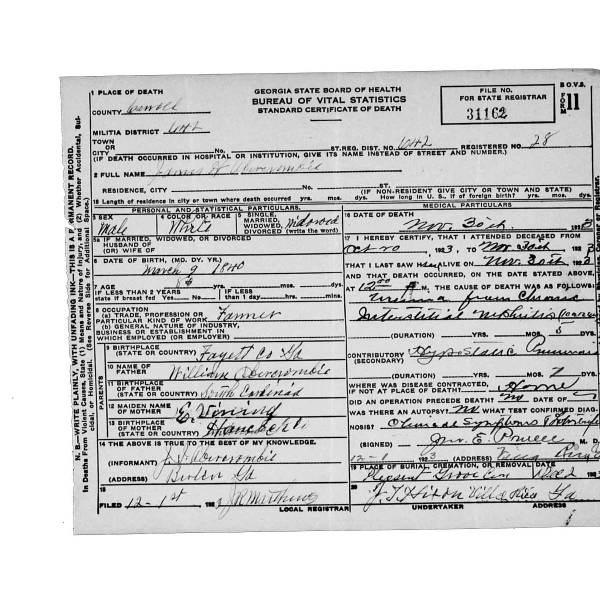 1 PLACE OF DEATH
COUNTY
MILITIA DISTRICT 642
TOWN
OR
CITY No. ST. REG. DIST. No. 642 REGISTERED NO. 28
(IF DEATH OCCURRED IN HOSPITAL OR INSTITUTION, GIVE ITS NAME INSTEAD OF STREET AND NUMBER.)
GEORGIA STATE BOARD OF HEALTH
BUREAU OF VITAL STATISTICS
STANDARD CERTIFICATE OF DEATH
FILE NO.
FOR STATE REGISTRAR
31162
B.O.V.S.
FORM 11
2 FULL NAME James W Abercrombie
RESIDENCE, CITY No. ST. (IF NON-RESIDENT GIVE CITY OR TOWN AND STATE)
18 Length of residence in city or town where death occurred yrs. mos. dys. How long in U. S., if of foreign birth? yrs. mos. dys.
PERSONAL AND STATISTICAL PARTICULARS.
3 SEX Male
4 COLOR OR RACE White
5 SINGLE, MARRIED, WIDOWED, DIVORCED (write the word) Widowed
5a IF MARRIED, WIDOWED, OR DIVORCED
HUSBAND OF
(OR) WIFE OF
6 DATE OF BIRTH. (MO. DY. YR.)
March 9 1840
7 AGE 83 yrs. mos. dys.
IF LESS THAN 2 YEARS state if breast fed Yes No
IF LESS THAN 1 day hrs. min.
8 OCCUPATION
(a) TRADE, PROFESSION OR PARTICULAR KIND OF WORK Farmer
(b) GENERAL NATURE OF INDUSTRY, BUSINESS OR ESTABLISHMENT IN WHICH EMPLOYED (OR EMPLOYER)
9 BIRTHPLACE
(STATE OR COUNTRY) Fayett Co Ga
PARENTS
10 NAME OF FATHER William Abercrombie
11 BIRTHPLACE OF FATHER (STATE OR COUNTRY) South Carolina
12 MAIDEN NAME OF MOTHER E. Vining
13 BIRTHPLACE OF MOTHER
14 THE ABOVE IS TRUE TO THE BEST OF MY KNOWLEDGE.
(INFORMANT) Abercrombie
(ADDRESS) Ga
15
FILED 12-1st 192 LOCAL REGISTRAR
MEDICAL PARTICULARS
16 DATE OF DEATH
Nov. 30th 1923
17 I HEREBY CERTIFY, THAT I ATTENDED DECEASED FROM
Oct 20, 1923, TO Nov 30th 192
THAT I LAST SAW H ALIVE ON Nov 30th 192
AND THAT DEATH OCCURRED, ON THE DATE STATED ABOVE,
AT M, THE CAUSE OF DEATH WAS AS FOLLOWS:
Uremia from Chronic
Interstitial Nephritis
(DURATION) YRS. MOS. 5 DYS.
CONTRIBUTORY (SECONDARY) Hypostatic
(DURATION) YRS. MOS. 2 DYS.
WHERE WAS DISEASE CONTRACTED,
IF NOT AT PLACE OF DEATH? Home
DID AN OPERATION PRECEDE DEATH? No DATE OF
WAS THERE AN AUTOPSY? No WHAT TEST CONFIRMED DIAG-
NOSIS? Clinical Symptoms
(SIGNED) Jno. E. M. D.
(ADDRESS) Villa Rica
19 PLACE OF BURIAL, CREMATION, OR REMOVAL DATE
Pleasant Grove Cem Dec 2
20 Hixon Villa Rica Ga
UNDERTAKER ADDRESS
N. B.—WRITE PLAINLY, WITH UNFADING INK—THIS IS A PERMANENT RECORD.
In Deaths From Violent Causes, State (1) Means and Nature of Injury; and (2) Whether Accidental, Sui-
cidal or Homicidal. (See Reverse Side for Additional Space.)